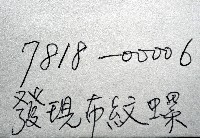 7818-00006
發現布紋螺